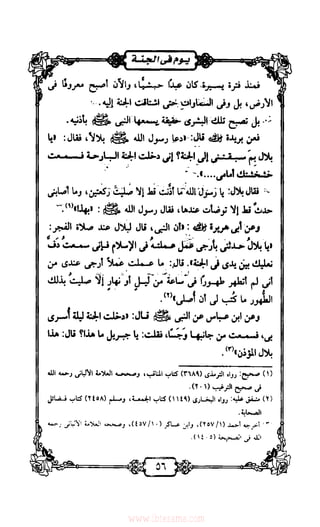 يوم في الجنة
فمنذ فترة يسيرة كان عبدًا حبشيًّا، والآن أصبح معروفًا في
الأرض، بل وفي السماوات حتى اشتاقت الجنة إليه.
بل تصبح تلك البشرى حقيقة يسمعها النبي ﷺ بأذنيه.
فعن بريدة ﷺ قال: «دعا رسول الله ﷺ بلالاً، فقال: «يا
بلال بمَ سبقتني إلى الجنة؟ إني دخلت الجنة البارحة فسمعت
خشخشتك أمامي....»
فقال بلال: يا رسول الله ما أذَّنت قط إلا صليتُ ركعتين، وما أصابني
حدثٌ قط إلا توضأت عندها، فقال رسول الله ﷺ: «بهذا»(١).
وعن أبي هريرة ﷺ: «أن النبي، قال لبلال عند صلاة الفجر:
«يا بلال حدثني بأرجى عمل عملته في الإسلام فإني سمعت دفَّ
نعليك بين يدي في الجنة». قال: ما عملت عملاً أرجى عندي من
أني لم أتطهر طهورًا في ساعة من ليل أو نهار إلا صليتُ بذلك
الطهور ما كُتب لي أن أصلي»(٢).
وعن ابن عباس عن النبي ﷺ قال: «دخلت الجنة ليلة أُسرى
بي، فسمعت من جانبها وَجْسًا، فقلت: يا جبريل ما هذا؟ قال: هذا
بلال المؤذن»(٣).
(١) صحيح: رواه الترمذي (٣٦٨٩) كتاب المناقب، وصححه العلامة الألباني رحمه الله
في صحيح الترغيب (٢٠١).
(٢) متفق عليه: رواه البخاري (١١٤٩) كتاب الجمعة، ومسلم (٢٤٥٨) كتاب فضائل
الصحابة.
أخرجه أحمد (١/ ٢٥٧)، وابن عساكر (١٠/ ٤٥٧)، وصححه العلامة الألباني رحمه
الله في الصحيحة (١٤٠٥).
٥٦